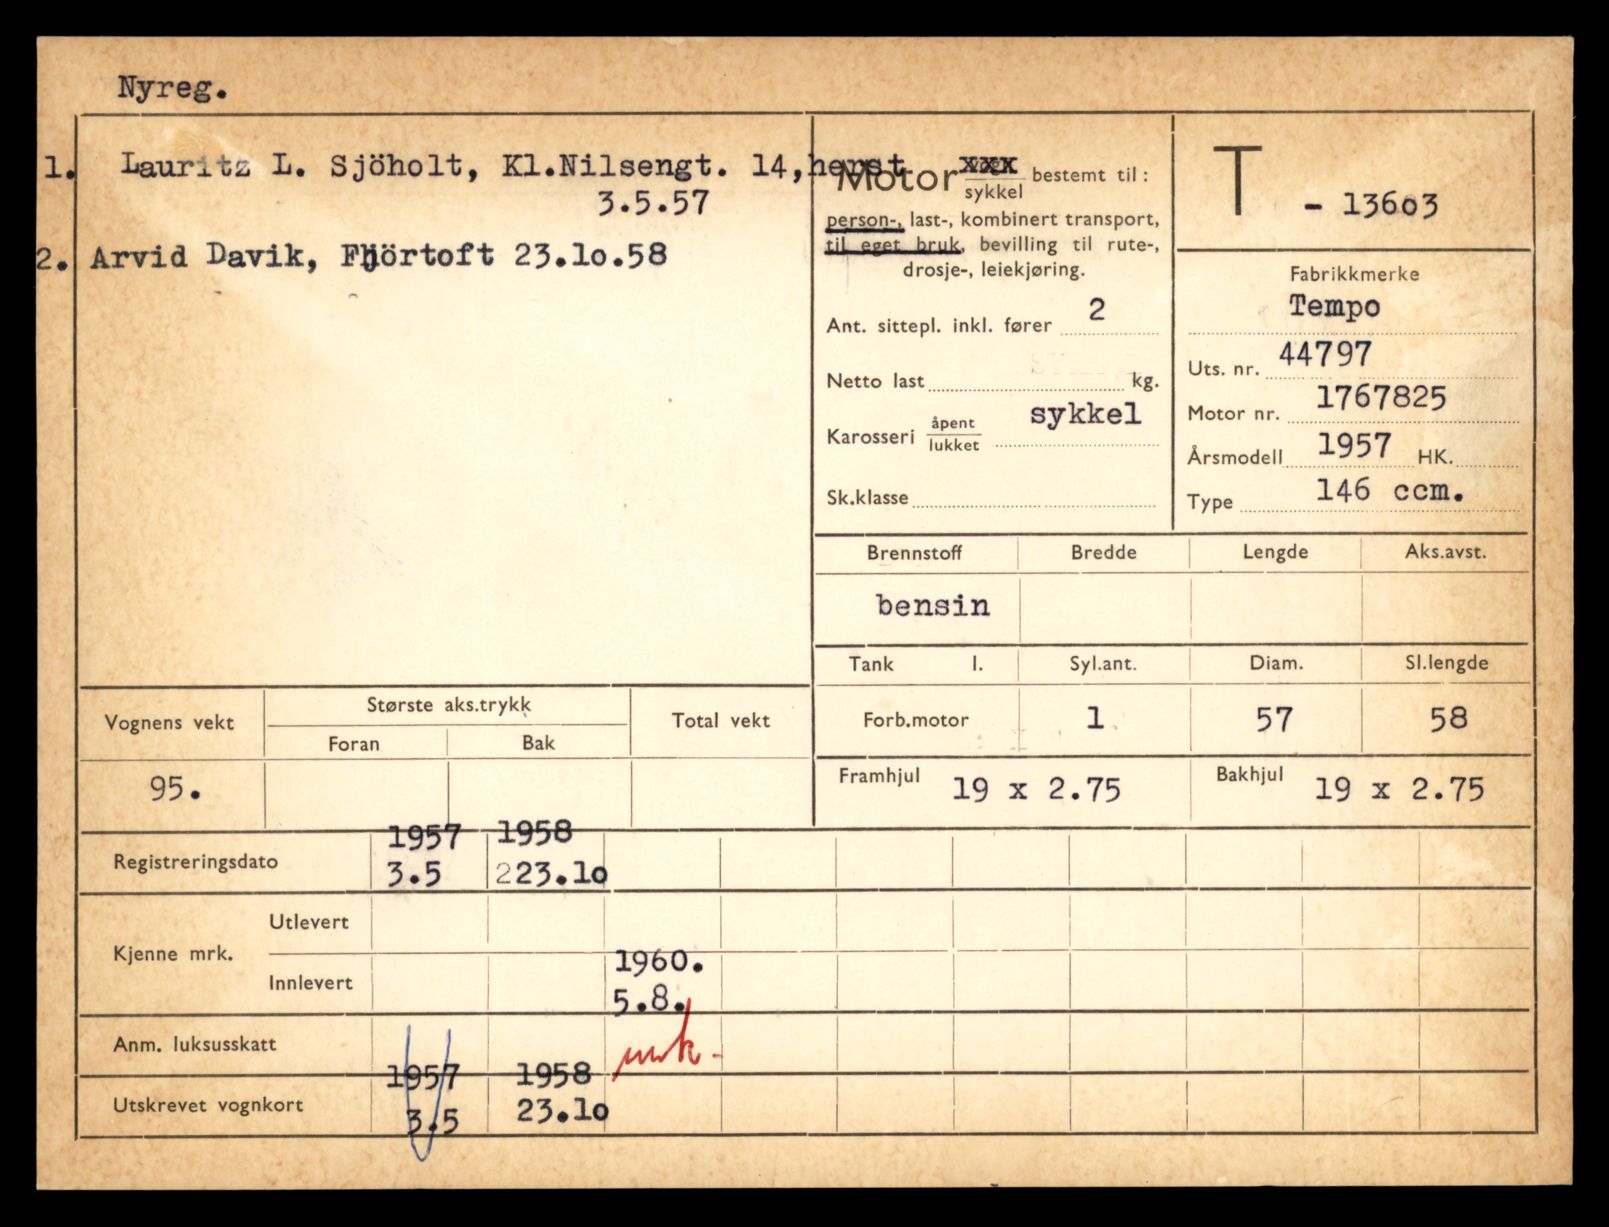 Nyreg.
1. Lauritz L. Sjöholt, Kl.Nilsengt. 14, herst
3.5.57
2. Arvid Davik, Fjörtoft 23.10.58
Motor xxx
sykkel
bestemt til:
person-, last-, kombinert transport,
til eget bruk, bevilling til rute-,
drosje-, leiekjøring.
Ant. sittepl. inkl. fører 2
Netto last kg.
Karosseri åpent
lukket
sykkel
Sk.klasse
T - 13603
Fabrikkmerke
Tempo
Uts. nr. 44797
Motor nr. 1767825
Årsmodell 1957 HK.
Type 146 ccm.
Brennstoff Bredde Lengde Aks.avst.
bensin
Tank l. Syl.ant. Diam. Sl.lengde
Forb.motor 1 57 58
Framhjul 19 x 2.75 Bakhjul 19 x 2.75
Vognens vekt Største aks.trykk Total vekt
Foran Bak
95.
1957 1958
Registreringsdato 3.5 223.10
Kjenne mrk. Utlevert
1960.
Innlevert 5.8.
Anm. luksusskatt
1957 1958
Utskrevet vognkort 3.5 23.10